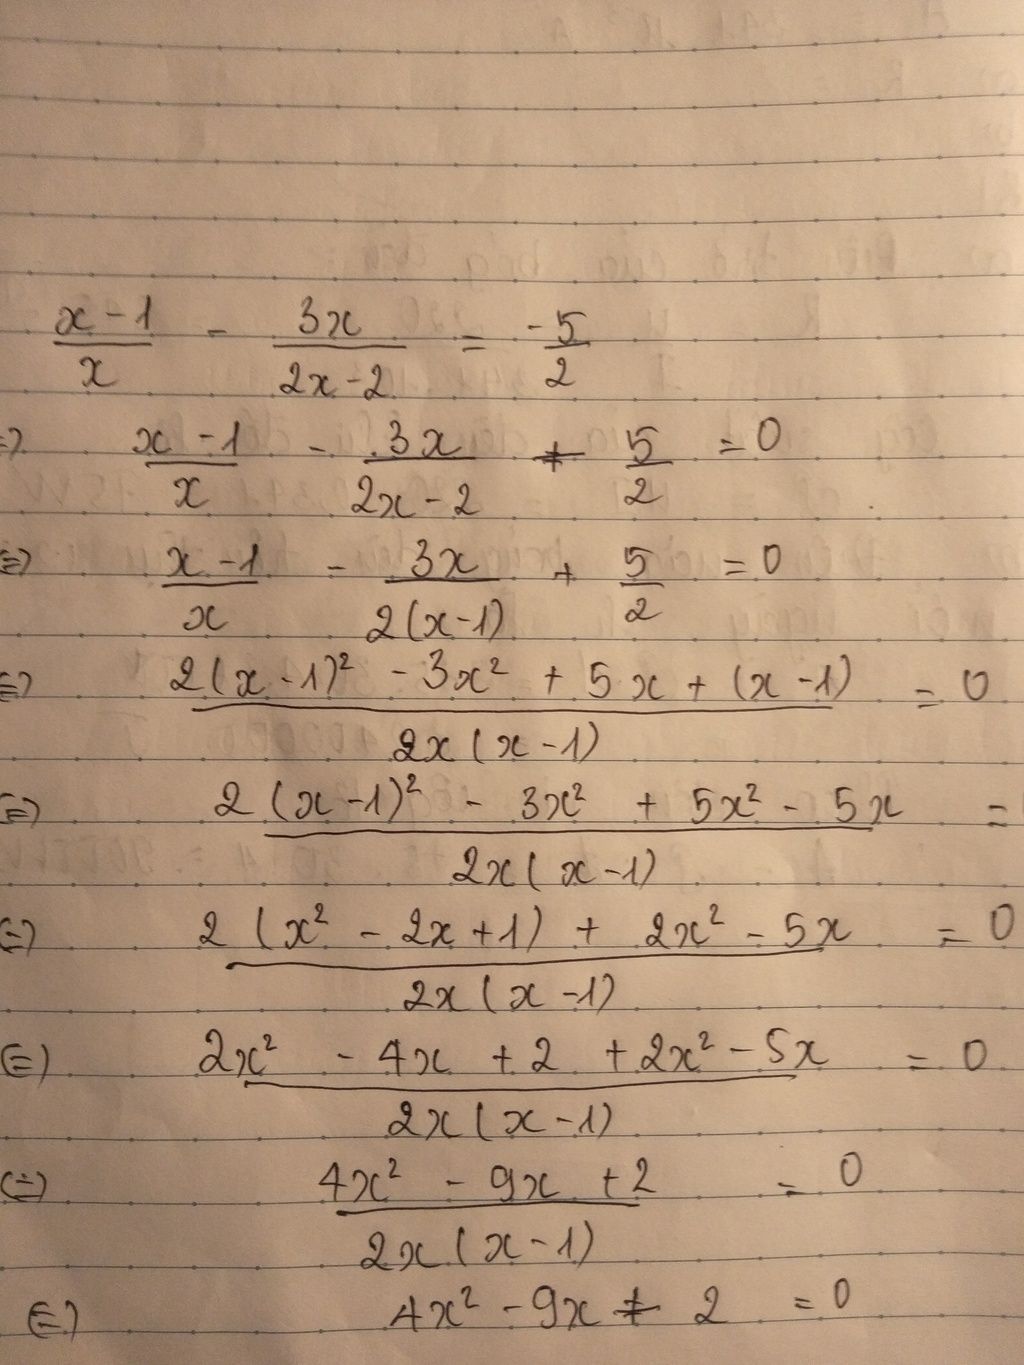 x - 1 / x - 3x / 2x - 2 = -5 / 2
=> x - 1 / x - 3x / 2x - 2 + 5 / 2 = 0
(=) x - 1 / x - 3x / 2(x-1) + 5 / 2 = 0
(=) 2(x - 1)² - 3x² + 5x + (x - 1) / 2x(x - 1) = 0
(=) 2(x - 1)² - 3x² + 5x² - 5x / 2x(x - 1) =
(=) 2(x² - 2x + 1) + 2x² - 5x / 2x(x - 1) = 0
(=) 2x² - 4x + 2 + 2x² - 5x / 2x(x - 1) = 0
(=) 4x² - 9x + 2 / 2x(x - 1) = 0
(=) 4x² - 9x + 2 = 0